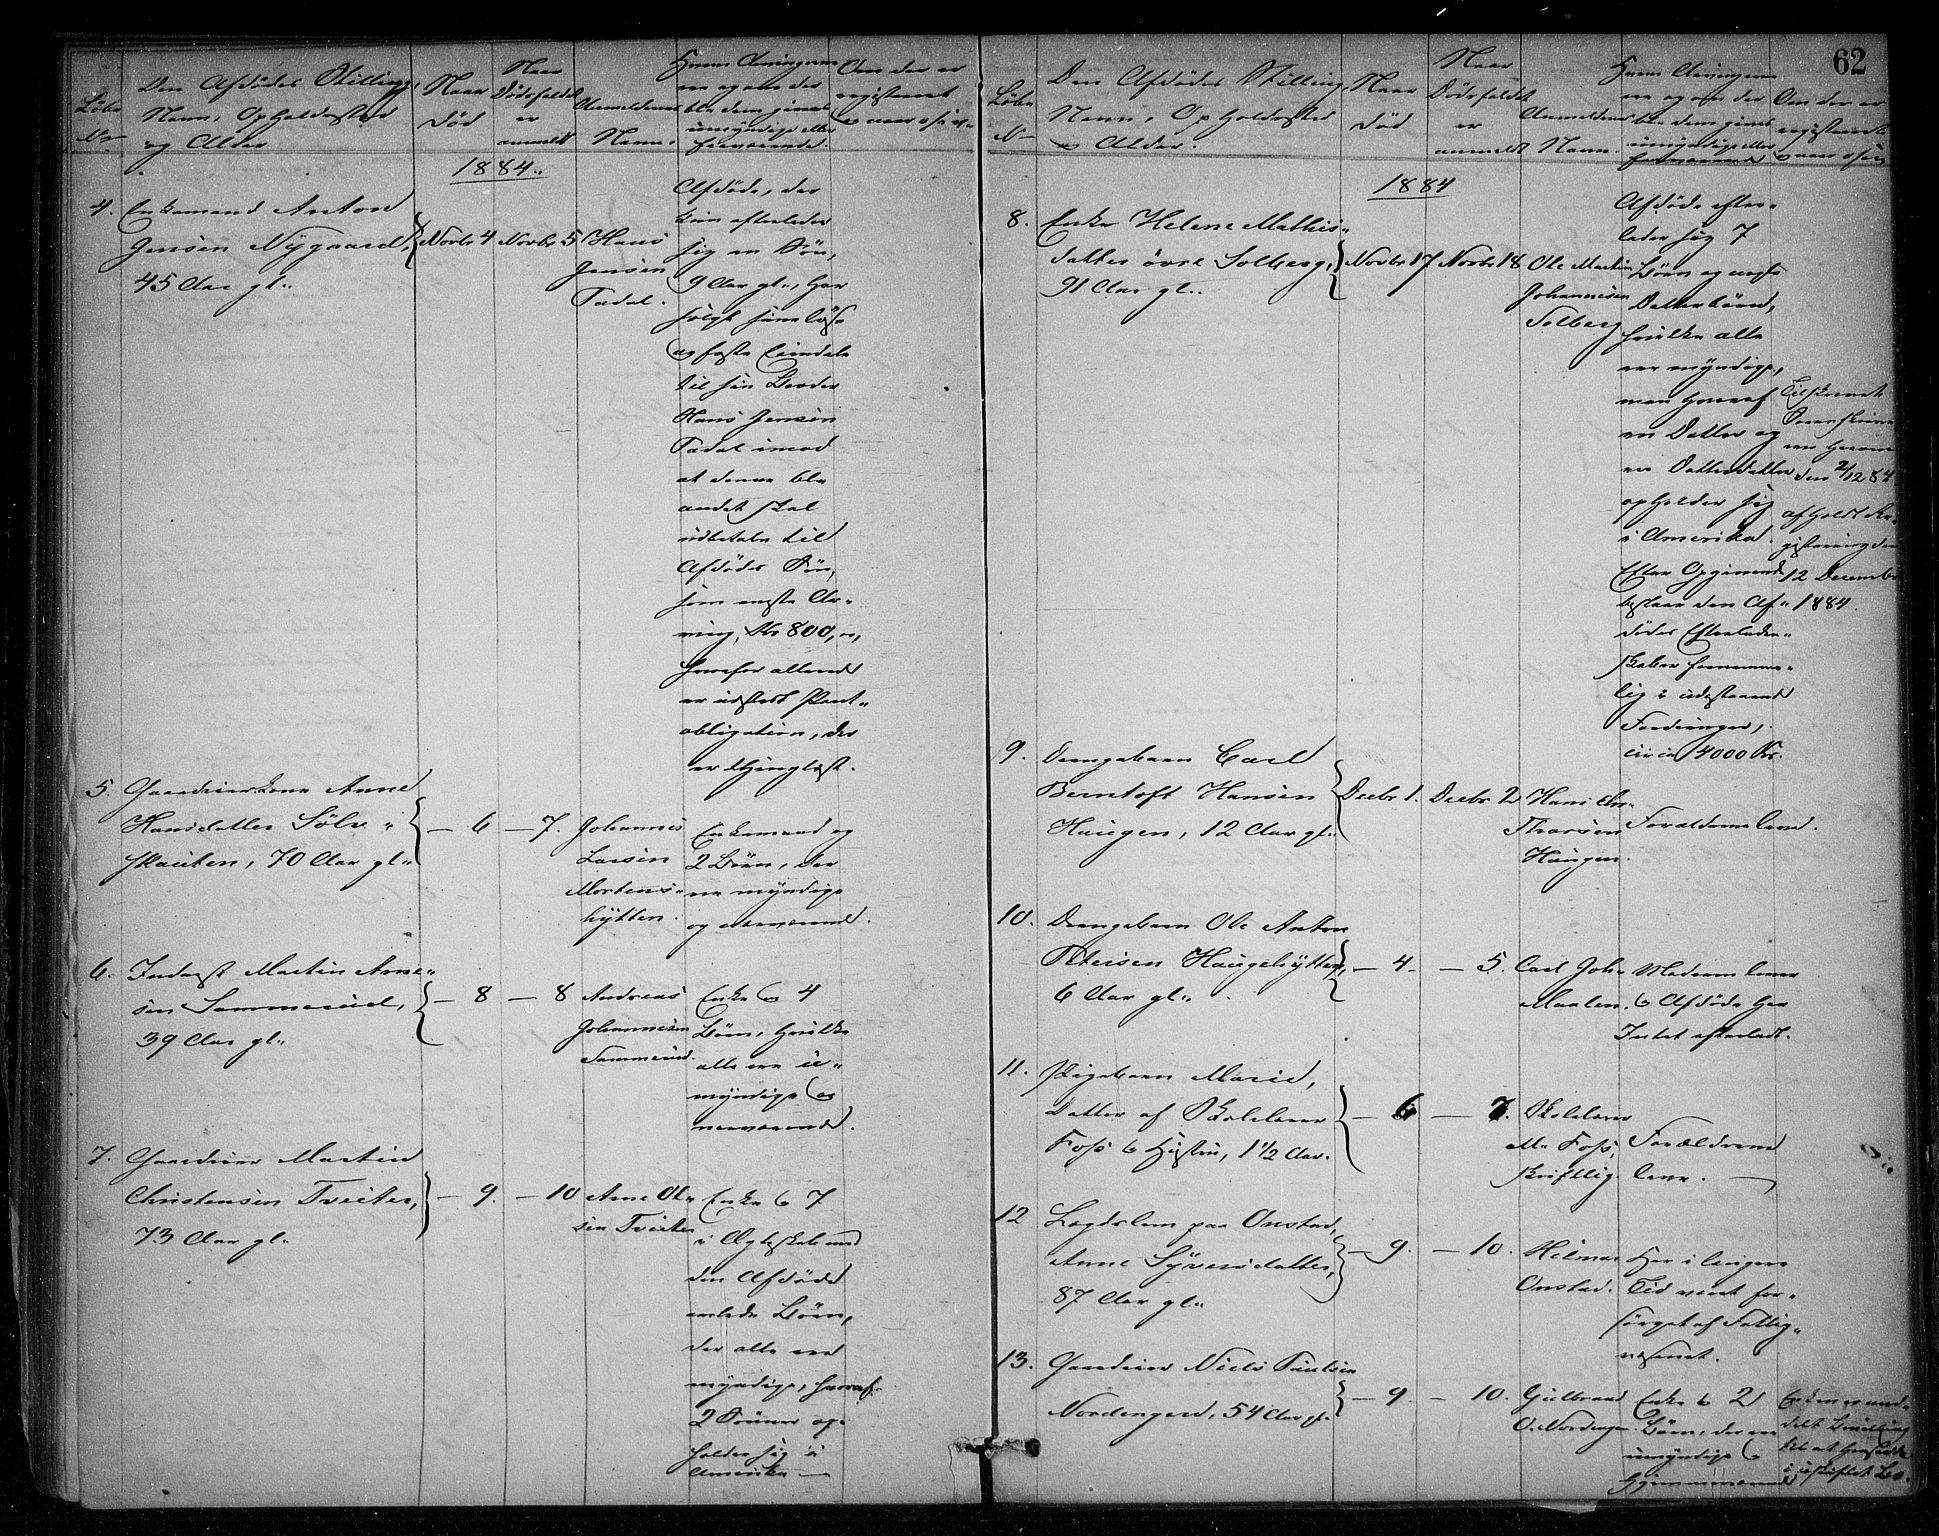 62
Løbe No
Den Afdødes Stilling,
Navn, Opholdssted
og Alder
Naar
død
Naar
Dødsfaldet
er
anmeldt
Anmelderens
Navn.
Hvem Arvingerne
ere og om der
blandt dem gives
umyndige eller
fraværende.
Om der er
registreret
1884.
4. Enkemand Anton
Jensen Nygaard,
45 Aar gl.
Novbr 4
Novbr 5
Hans
Jensen
Tadal.
Afdøde, der
kun efterlader
sig en Søn,
9 Aar gl., har
solgt sine løse
og faste Eiendele
til sin Broder
Hans Jensen
Tadal imod
at denne bl.
andet skal
udbetale til
Afdødes Søn,
som eneste Ar-
ving, Kr 800,
hvorfor allerede
er udstedt Pant-
obligation, der
er thinglæst.
5. Gaardeierkone Anne
Hansdatter Sølv-
skutten, 70 Aar gl.
— 6
— 7.
Johannes
Larsen
Mortens-
hytten.
Enkemand og
2 Børn, der
ere myndige
og nærværende.
6. Inderst Martin Arne-
sen Sammerud,
39 Aar gl.
— 8
— 8
Andreas
Johannesen
Sammerud.
Enke og 4
Børn, hvilke
alle ere u-
myndige og
nærværende.
7. Gaardeier Martin
Christensen Tveiter,
73 Aar gl.
— 9.
— 10
Arne Ol-
sen Tveiter
Enke & 7
i Ægteskab med
den Afdøde
avlede Børn,
der alle ere
myndige, hvoraf
2 Sønner op-
holder sig i
Amerika —
Løbe No
Den Afdødes Stilling,
Navn, Opholdssted
og Alder.
Naar
død
Naar
Dødsfaldet
er
anmeldt
Anmelderens
Navn.
Hvem Arvingerne
ere og om der
blandt dem gives
umyndige eller
fraværende
Om der er
registreret
1884
8. Enke Helene Mathis-
datter øvre Solberg,
91 Aar gl.
Novbr 17
Novbr 18
Ole Martin
Johannesen
Solberg
Afdøde efter-
lader sig 7
Børn og
Datterbørn,
hvilke alle
ere myndige,
men hvoraf
en Datter og
en Datterdatter
opholder sig
i Amerika.
Efter Opgivende
bestaar den Af-
dødes Efterladen-
skaber fornemme-
lig i udestaaende
Fordringer,
circa 4000 Kr.
Tilskrevet
den 2/12 84
afholdt Re-
gistrering den
12 December
1884.
9. Drengebarn Carl
Berntoft Hansen
Haugen, 12 Aar gl.
Decbr 1.
Decbr 2
Hans An-
thorsen
Haugen.
Forældrene leve.
10. Drengebarn Ole Anton
Petersen Haugehytten,
6 Aar gl.
— 4.
— 5.
Carl Joh.
Maalen.
Moderen lever
& Afdøde har
Intet efterladt.
11. Pigebarn Marie,
Datter af Skolelærer
Foss & Hustru, 1 1/2 Aar.
— 6
— 7.
Skolelærer
M. Foss,
skriftlig.
Forældrene
leve. —
12 Lægdslem paa Onstad,
Anne Syversdatter,
87 Aar gl.
— 9.
— 10.
Hilmar
Onstad.
Har i længere
Tid været for-
sørget af Fattig-
væsenet.
13. Gaardeier Niels Paulsen
Nordengen, 54 Aar gl.
— 9.
— 10.
Gulbrand
O. Nordengen
Enke & 2
Børn, der ere
umyndige &
hjemmeværende
Enken er med-
delt Bevilling
til at hensidde
i uskiftet Bo.